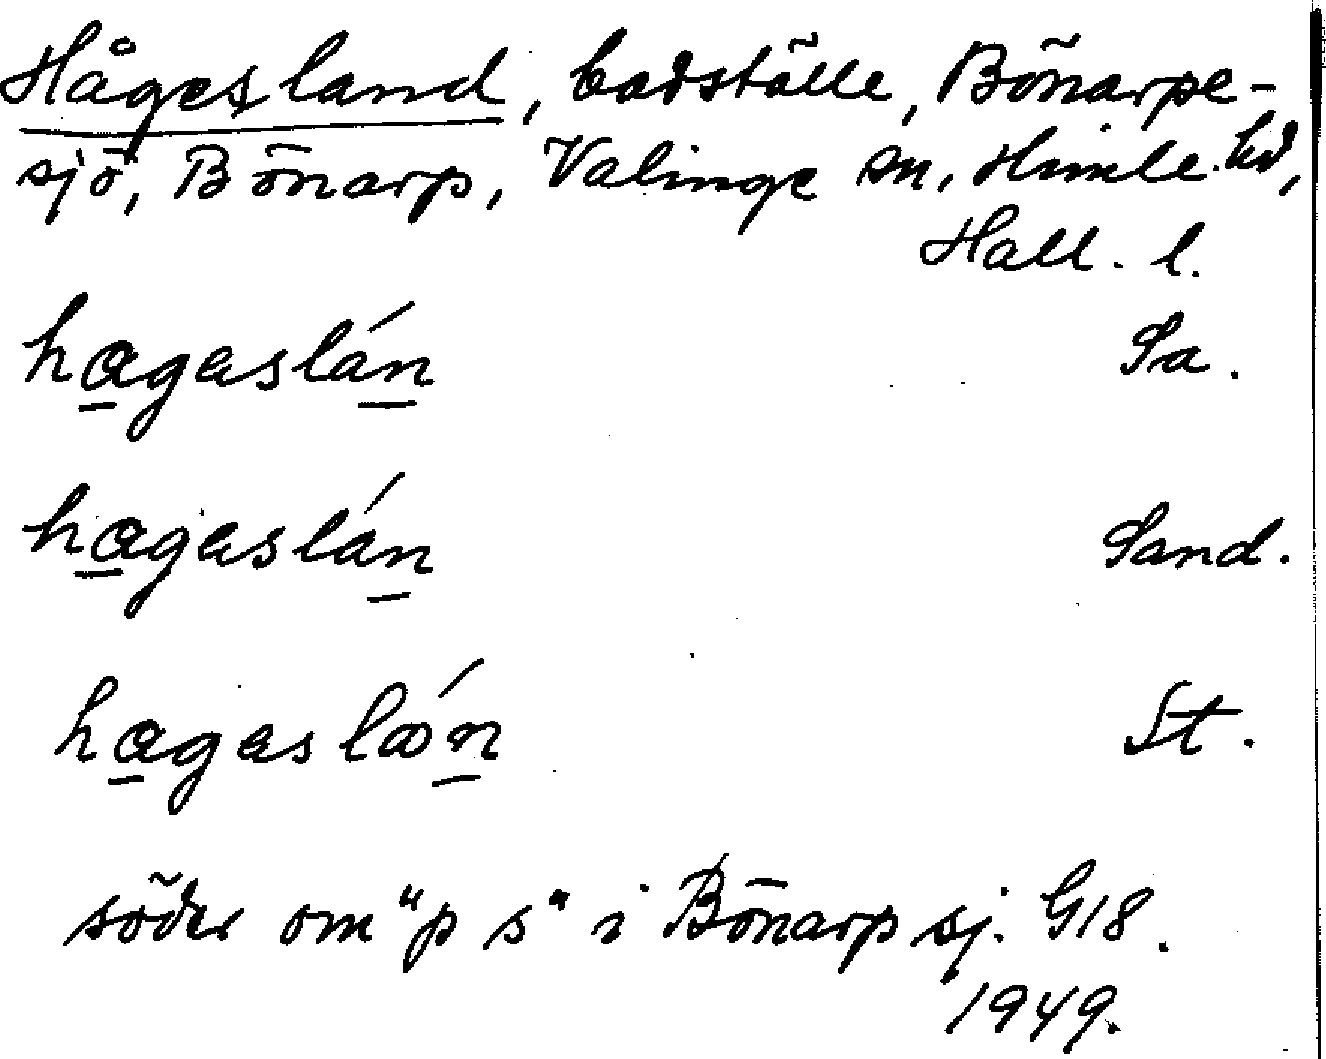 Hågesland, badställe, Bönarpe-
sjö, Bönarp, Valinge sn, Himle hd,
Hall. l.
hagaslán Sa.
hagaslán Sand.
hagaslán St.
söder om "p s" i Bönarp sj. G18.
1949.